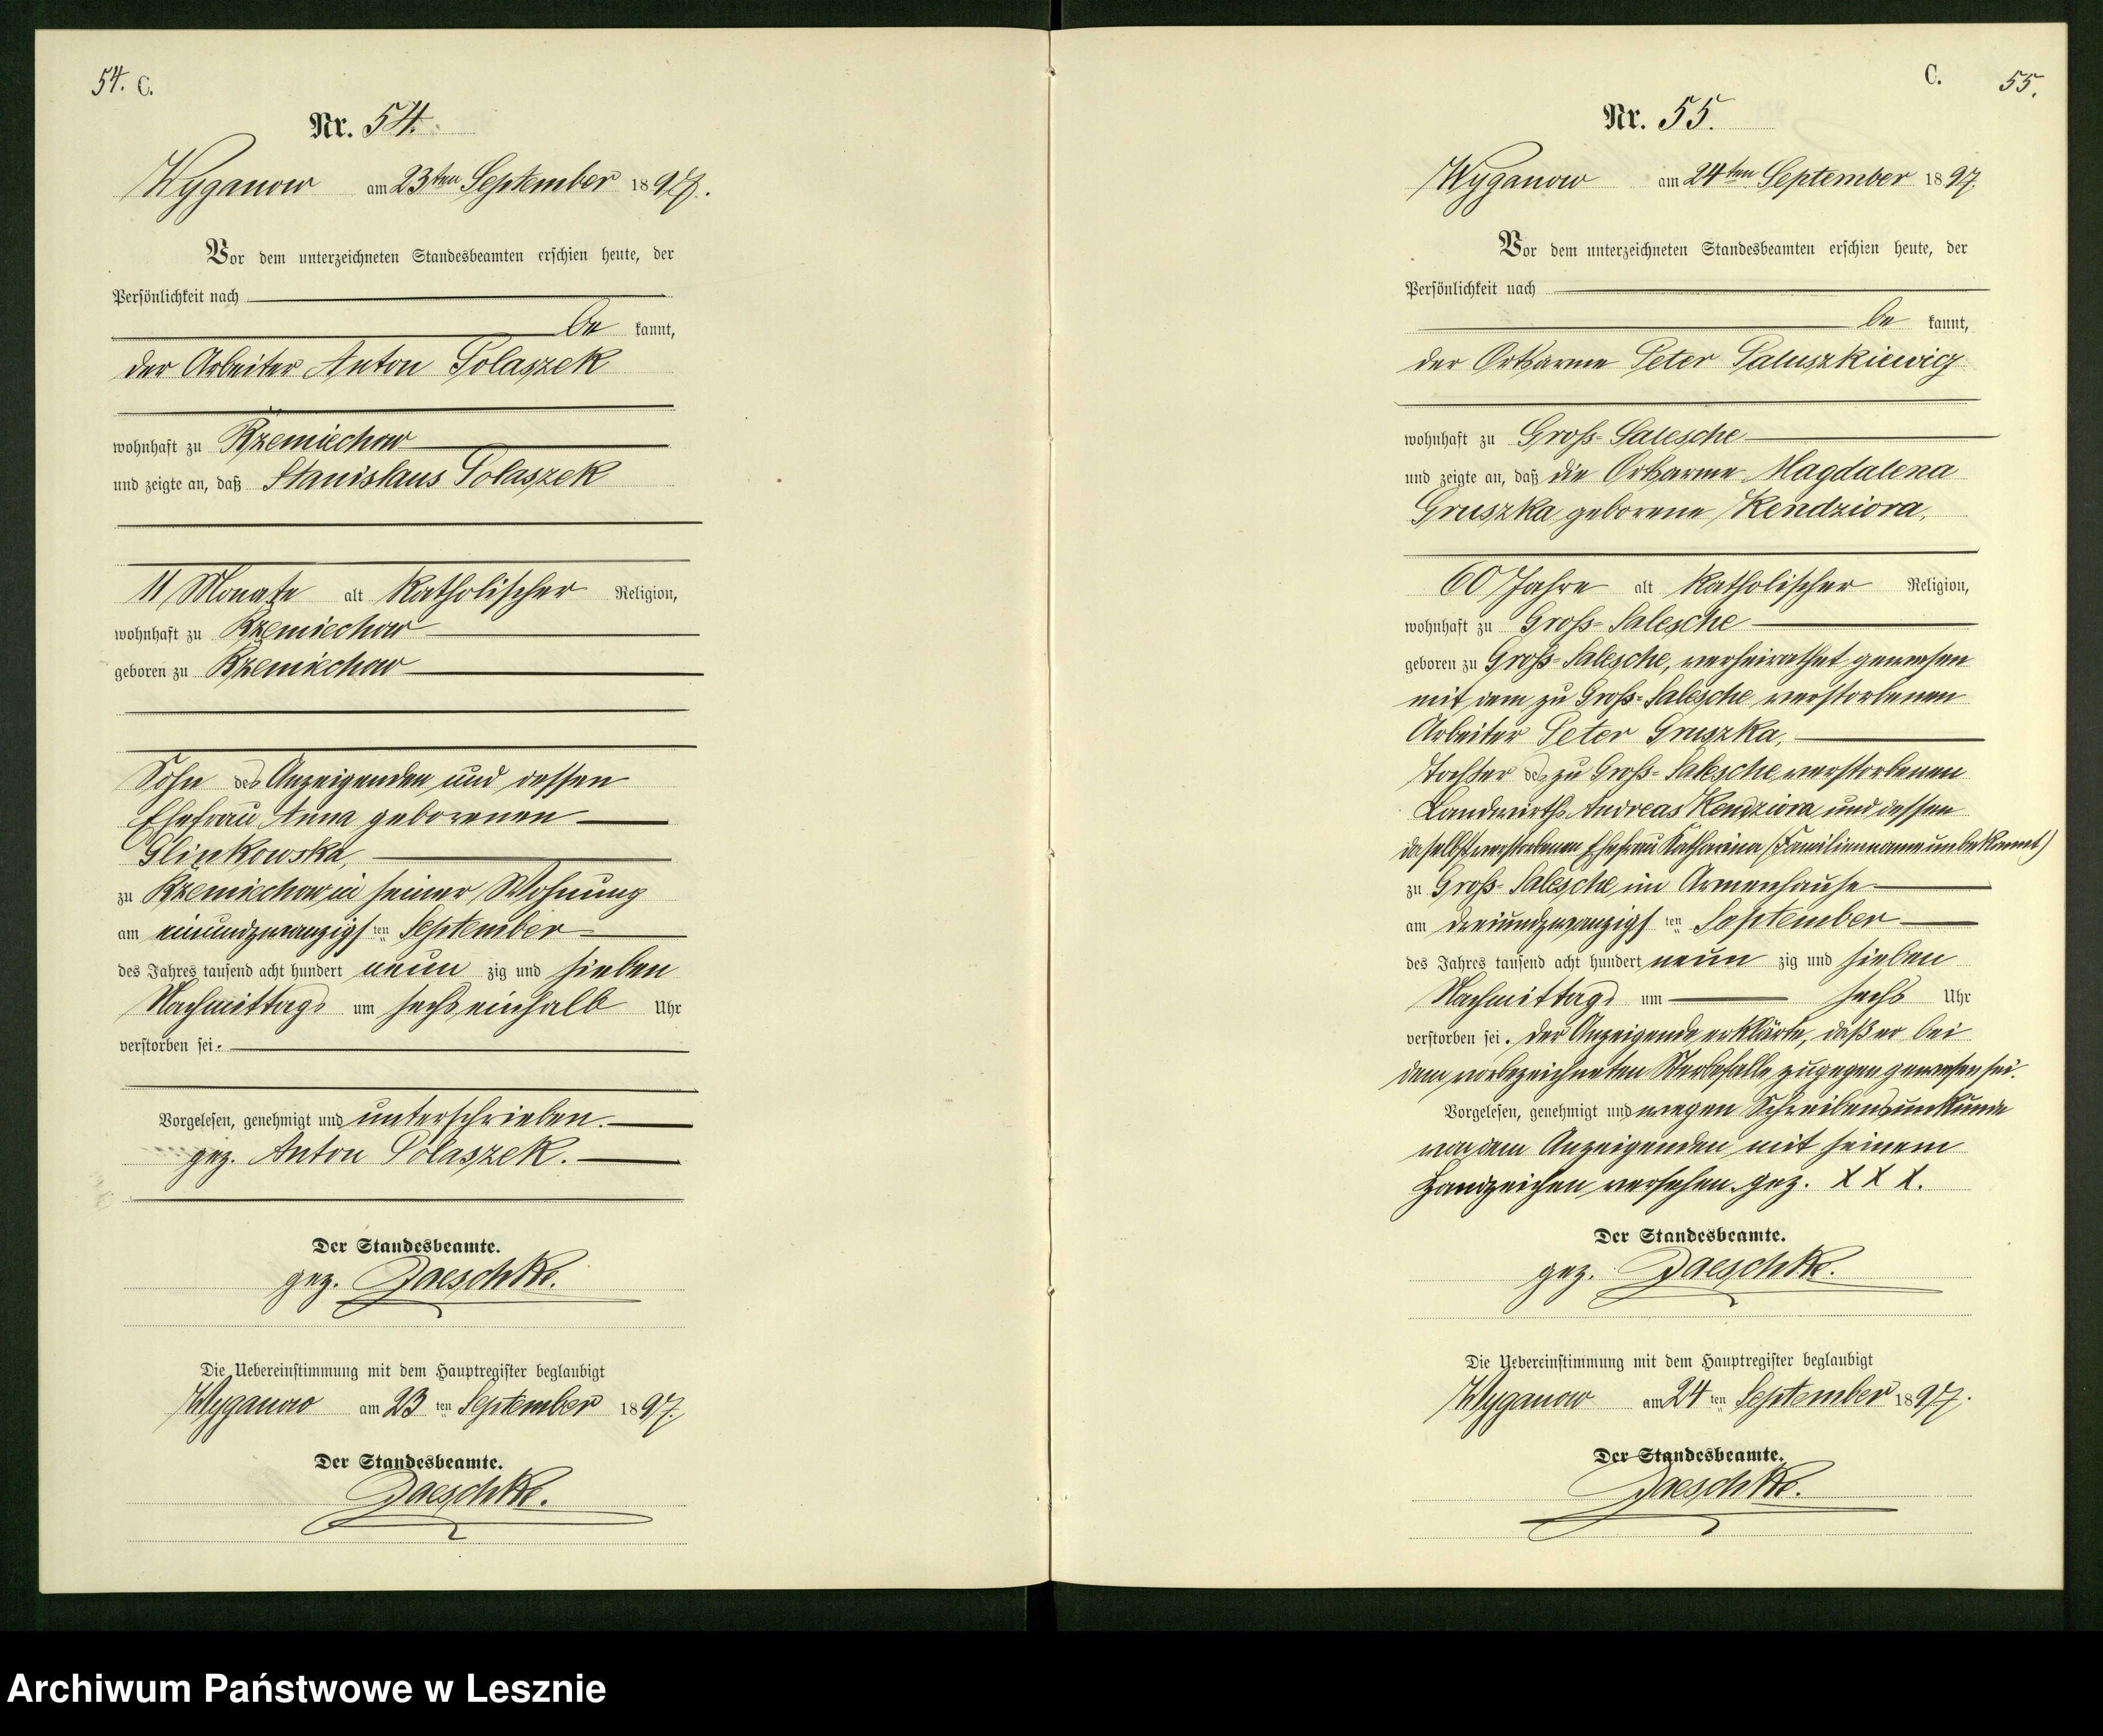 54. C.
Nr. 54.
Wyganow am 23ten September 1897.
Vor dem unterzeichneten Standesbeamten erschien heute, der
Persönlichkeit nach
be kannt,
der Arbeiter Anton Polaszek
wohnhaft zu Rzemiechow
und zeigte an, daß Stanislaus Polaszek
11 Monate alt katholischer Religion,
wohnhaft zu Rzemiechow
geboren zu Rzemiechow
Sohn des Anzeigenden und dessen
Ehefrau Anna geborenen
Glinkowska,
zu Rzemiechow in seiner Wohnung
am einundzwanzigsten September
des Jahres tausend acht hundert neun zig und sieben
Nachmittags um sechs einhalb Uhr
verstorben sei.
Vorgelesen, genehmigt und unterschrieben.
gez. Anton Polaszek.
Der Standesbeamte.
gez. Jaeschke.
Die Uebereinstimmung mit dem Hauptregister beglaubigt
Wyganow am 23 ten September 1897.
Der Standesbeamte.
Jaeschke.
C. 55.
Nr. 55.
Wyganow am 24ten September 1897.
Vor dem unterzeichneten Standesbeamten erschien heute, der
Persönlichkeit nach
be kannt,
der Ortsarme Peter Paluszkiewicz
wohnhaft zu Groß-Salesche
und zeigte an, daß die Ortsarme Magdalena
Gruszka geborene Kendziora,
60 Jahre alt katholischer Religion,
wohnhaft zu Groß-Salesche
geboren zu Groß-Salesche, verheirathet gewesen
mit dem zu Groß-Salesche verstorbenen
Arbeiter Peter Gruszka,
Tochter des zu Groß-Salesche verstorbenen
Landwirths Andreas Kendziora und dessen
daselbst verstorbenen Ehefrau Katharina (Familienname unbekannt)
zu Groß-Salesche im Armenhause
am dreiundzwanzigsten September
des Jahres tausend acht hundert neun zig und sieben
Nachmittags um sechs Uhr
verstorben sei. Der Anzeigende erklärte, daß er bei
dem vorbezeichneten Sterbefalle zugegen gewesen sei.
Vorgelesen, genehmigt und wegen Schreibensunkunde
von dem Anzeigenden mit seinem
Handzeichen versehen. gez. X X X.
Der Standesbeamte.
gez. Jaeschke.
Die Uebereinstimmung mit dem Hauptregister beglaubigt
Wyganow am 24 ten September 1897.
Der Standesbeamte.
Jaeschke.
Archiwum Państwowe w Lesznie